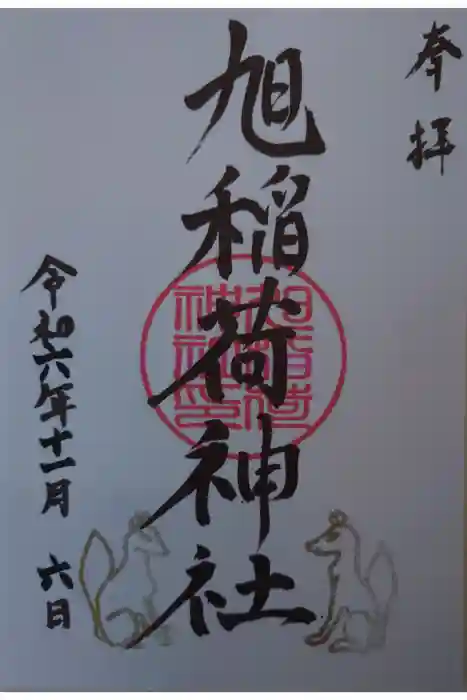 奉拝
旭稲荷神社
旭稲荷
神社印
令和六年十一月 六日